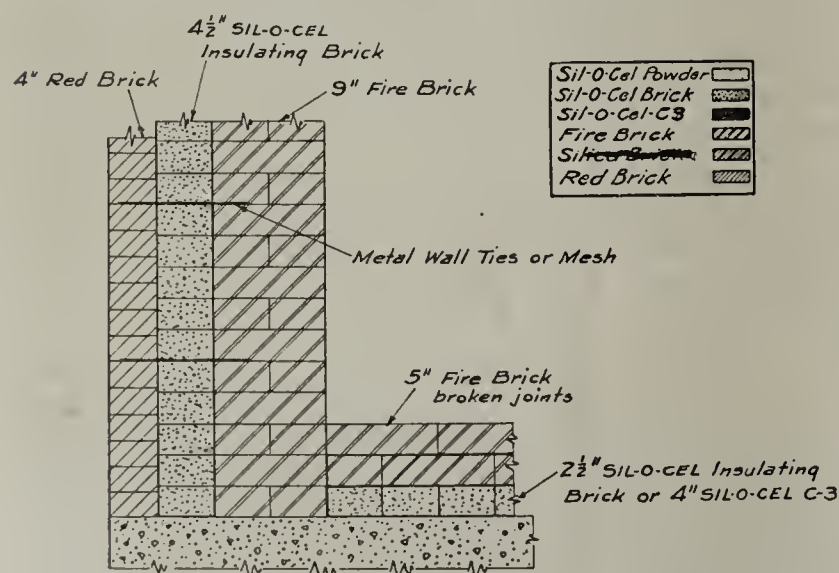 4½" SIL-O-CEL
Insulating Brick
4" Red Brick
9" Fire Brick
Sil-O-Cel Powder
Sil-O-Cel Brick
Sil-O-Cel-C3
Fire Brick
Silica Brick
Red Brick
Metal Wall Ties or Mesh
5" Fire Brick
broken joints
2½" SIL-O-CEL Insulating
Brick or 4" SIL-O-CEL C-3